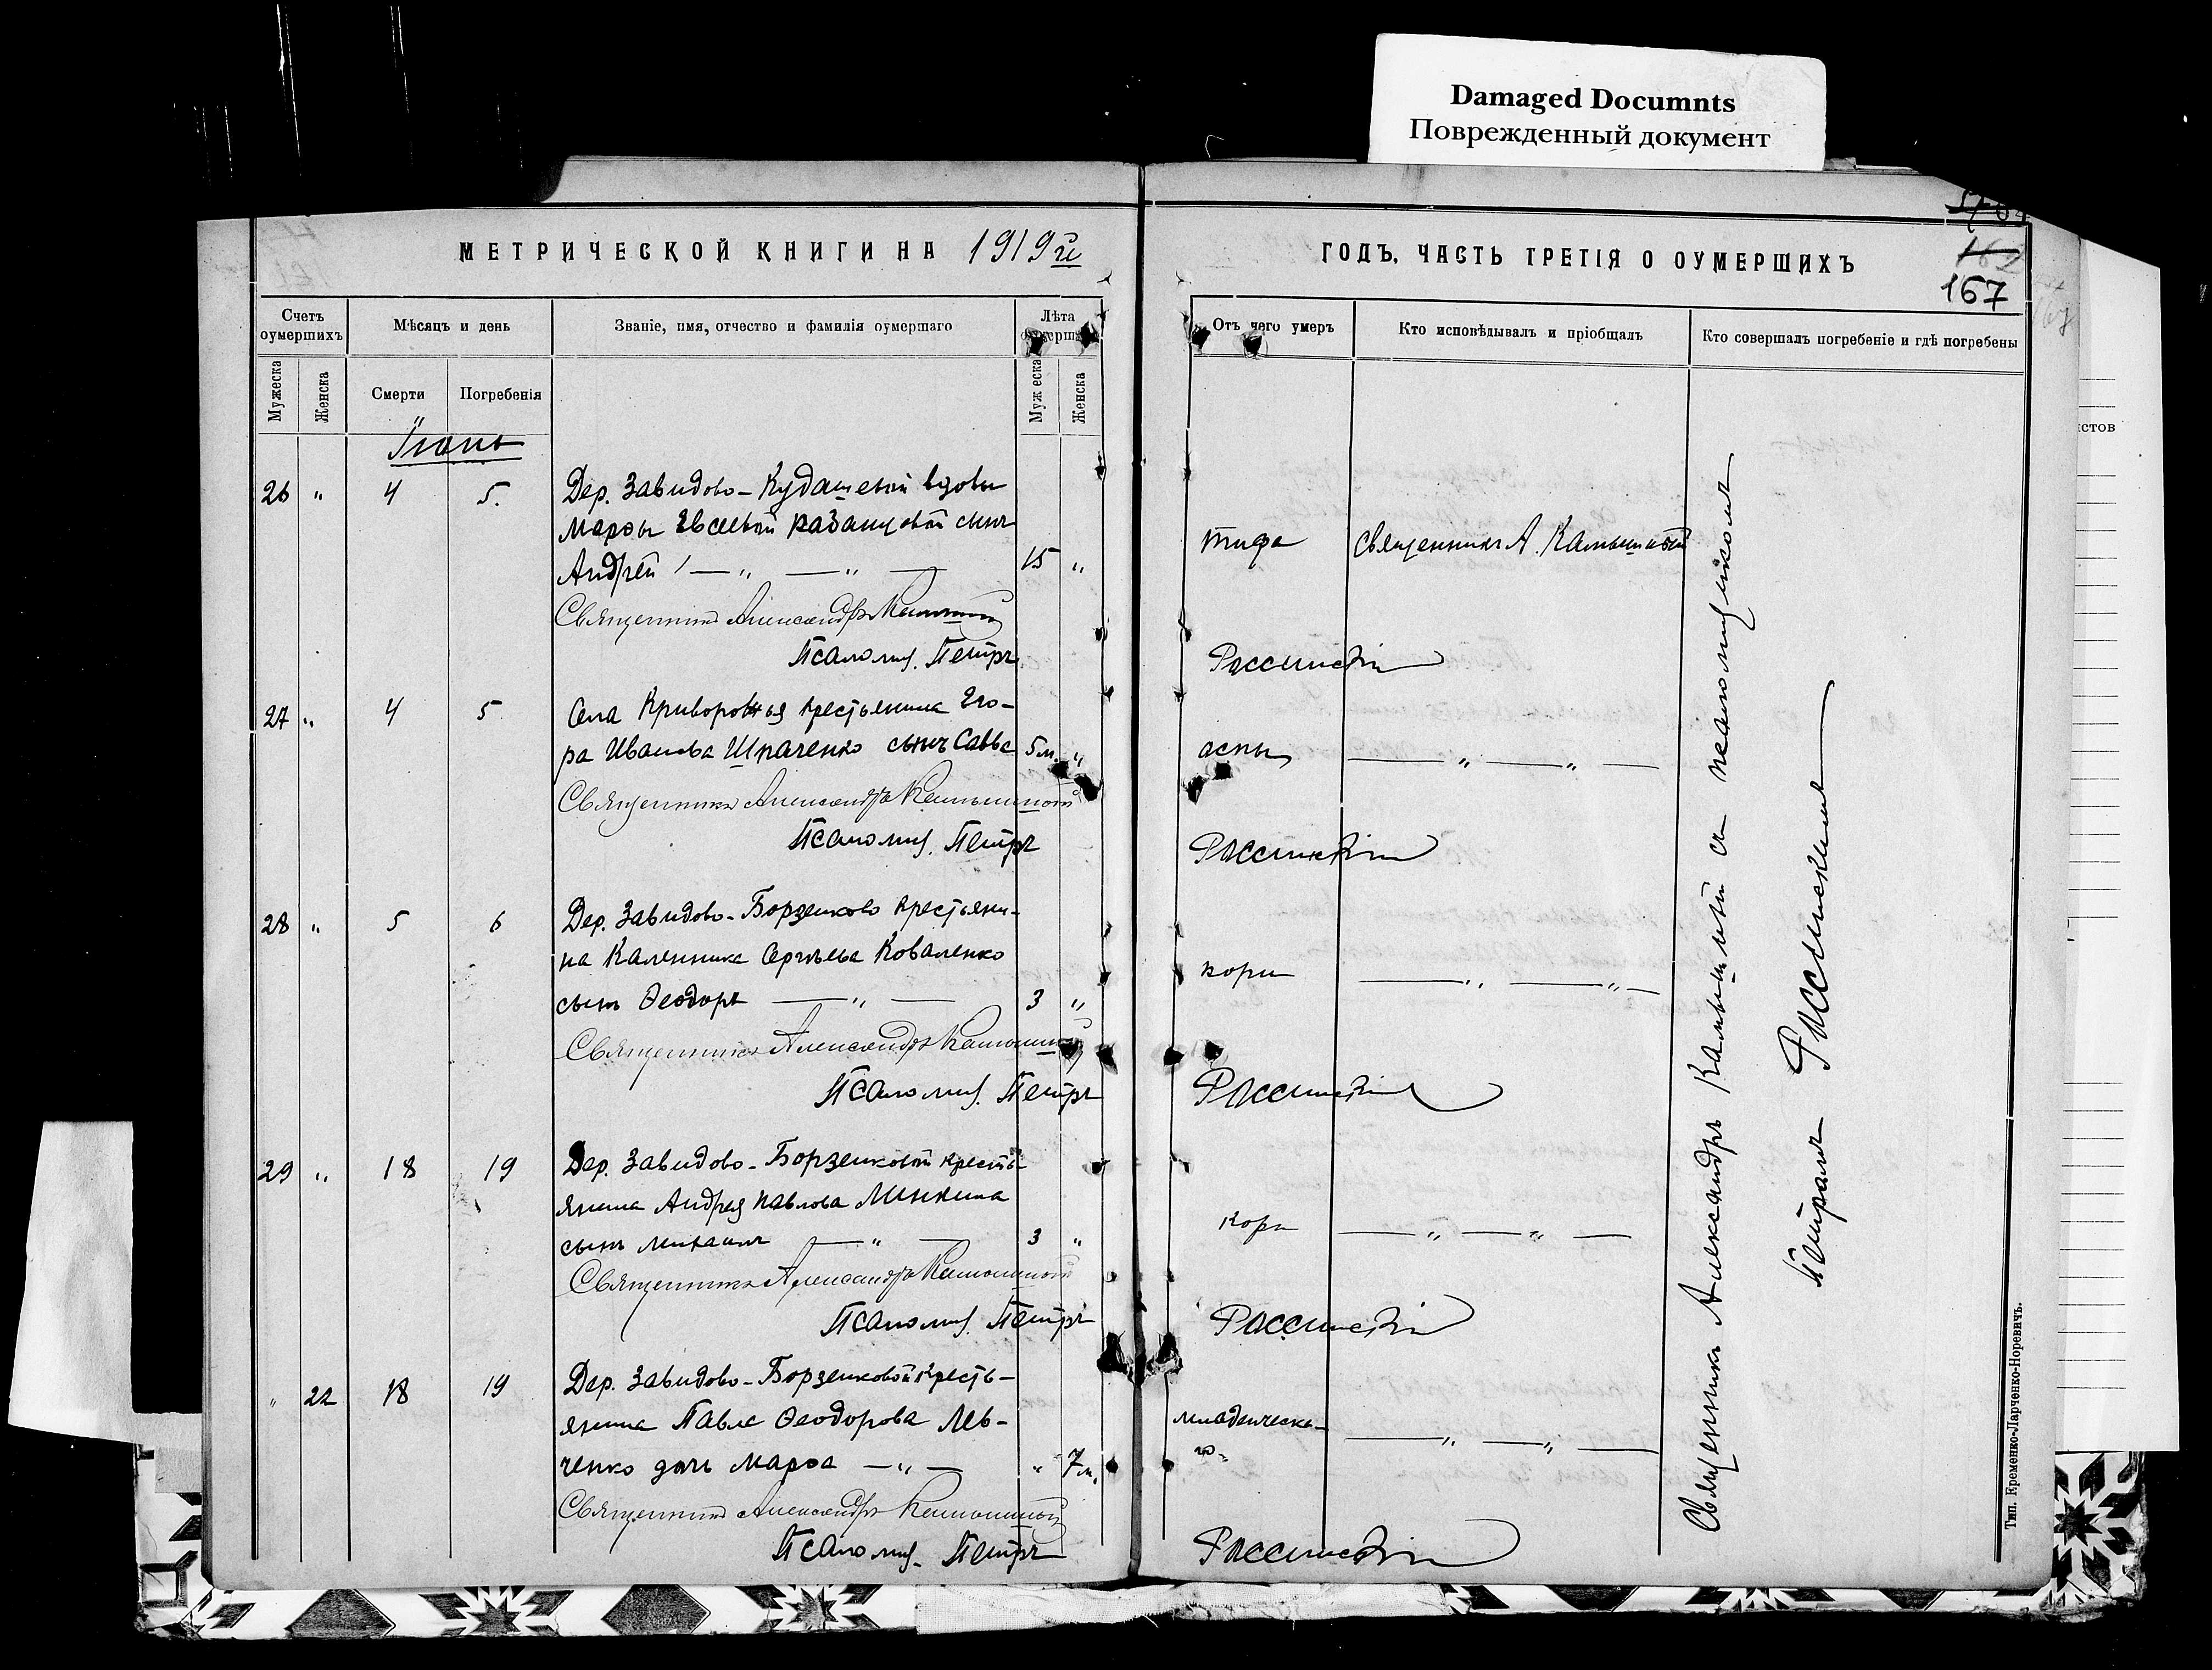 Damaged Documnts
Поврежденный документ
МЕТРИЧЕСКОЙ КНИГИ НА 1919й
ГОДЪ. ЧАСТЬ ТРЕТІЯ О ОУМЕРШИХЪ
162
167
Счетъ оумершихъ
Мѣсяцъ и день
Званіе, имя, отчество и фамилія оумершаго
Лѣта оумершихъ
Отъ чего умеръ
Кто исповѣдывалъ и пріобщалъ
Кто совершалъ погребеніе и гдѣ погребены
Мужеска
Женска
Смерти
Погребенія
Мужеска
Женска
Іюнь
26 " 4 5. Дер. Завидово-Кудашевой вдовы
Марфы Евсеевой Казанцовой сынъ
Андрей — " — " — 15 " тифа Священникъ А. Камышный
Священникъ Александръ Камышный
Псаломщ. Петръ Россинскій
27 " 4 5 Села Криворожья крестьянина Его-
ра Иванова Шпаченко сынъ Савва 5 м. " оспы — " — " —
Священникъ Александръ Камышный
Псаломщ. Петръ Россинскій
28 " 5 6 Дер. Завидово-Борзенково крестьяни-
на Каленика Сергѣева Коваленко
сынъ Ѳеодоръ — " — 3 " кори — " — " —
Священникъ Александръ Камышный
Псаломщ. Петръ Россинскій
29 " 18 19 Дер. Завидово-Борзенковой кресть-
янина Андрея Павлова Минкина
сынъ Михаилъ — " — 3 " кори — " — " —
Священникъ Александръ Камышный
Псаломщ. Петръ Россинскій
" 22 18 19 Дер. Завидово-Борзенковой кресть-
янина Павла Ѳеодорова Лев-
ченко дочь Марфа — " — " 7 м. младенческа-
го. — " — " —
Священникъ Александръ Камышный
Псаломщ. Петръ Россинскій
Священникъ Александръ Камышный съ псаломщикомъ
Петромъ Россинскимъ
Тип. Еременко-Ларченко-Норевичъ.
стов